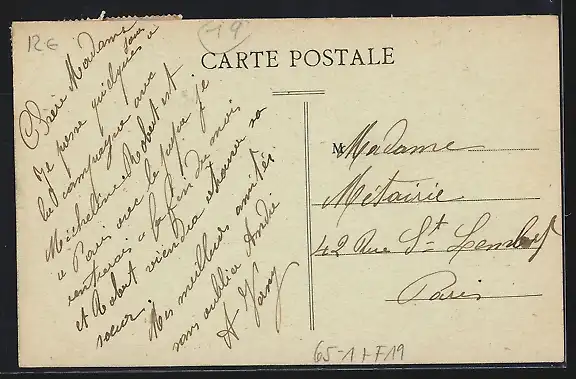 12€
19
CARTE POSTALE
Chère Madame
Je passe quelques jours à
la campagne avec
Micheline. Robert est
à Paris avec le papa je
rentrerai à la fin du mois
et Robert viendra retrouver sa
sœur.
Mes meilleurs amitiés
sans oublier Andrée
M
Madame
Métairie
42 Rue St
Paris
65-1 + F19